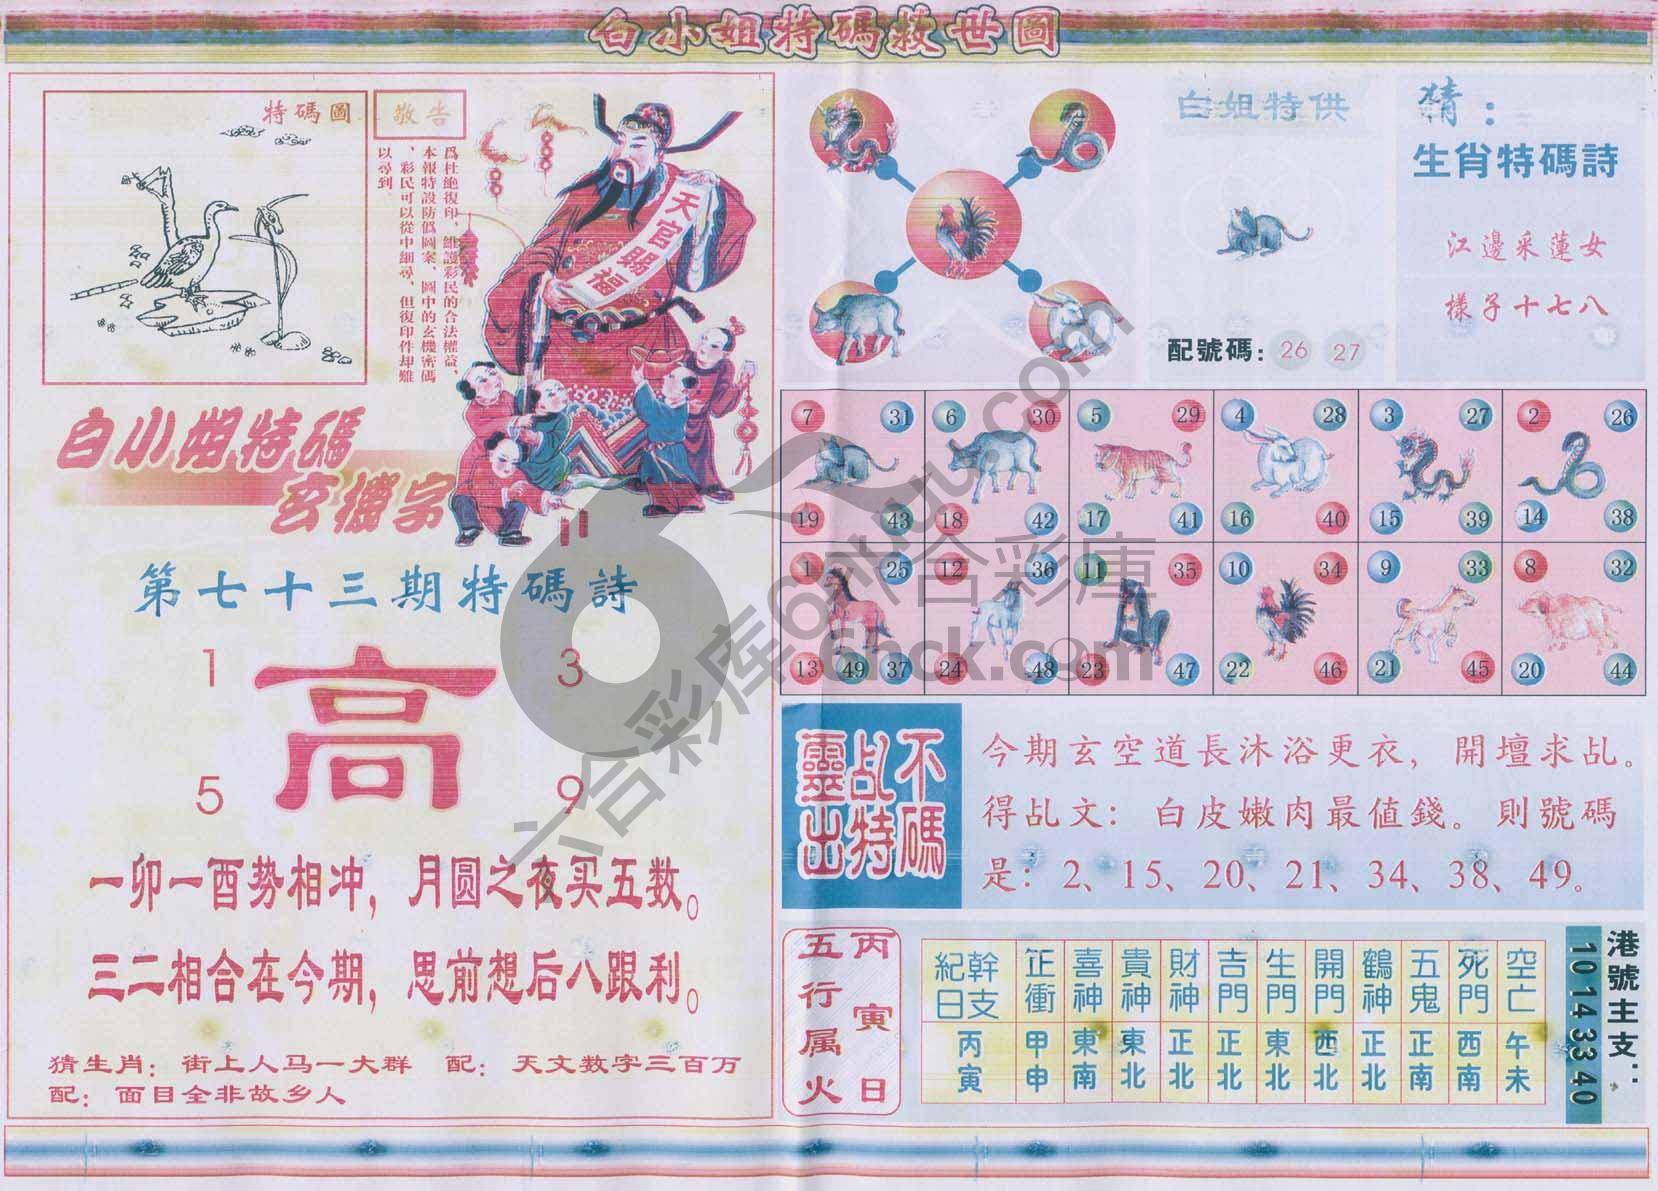 白小姐特碼救世圖
特碼圖
敬告
爲杜絶復印、維護彩民的合法權益，
本報特設防僞圖案、圖中的玄機密碼
、彩民可以從中細尋、但復印件却難
以尋到
天官賜福
白小姐特碼
玄機字
第七十三期特碼詩
1 3
高
5 9
一卯一酉势相冲，月圆之夜买五数。
三二相合在今期，思前想后八跟利。
猜生肖：街上人马一大群 配：天文数字三百万
配：面目全非故乡人
白姐特供
配號碼：26 27
猜：
生肖特碼詩
江邊采蓮女
樣子十七八
7 31 6 30 5 29 4 28 3 27 2 26
19 43 18 42 17 41 16 40 15 39 14 38
1 25 12 36 11 35 10 34 9 33 8 32
13 49 37 24 48 23 47 22 46 21 45 20 44
不碼
乩特
靈出
今期玄空道長沐浴更衣，開壇求乩。
得乩文：白皮嫩肉最值錢。則號碼
是：2、15、20、21、34、38、49。
丙寅日
五行属火
幹支紀日 正衝 喜神 貴神 財神 吉門 生門 開門 鶴神 五鬼 死門 空亡
丙寅 甲申 東南 東北 正北 正北 東北 西北 正北 正南 西南 午未
港號主支：
10 14 33 40
六合彩库6hck.com
六合彩庫
6hck.com